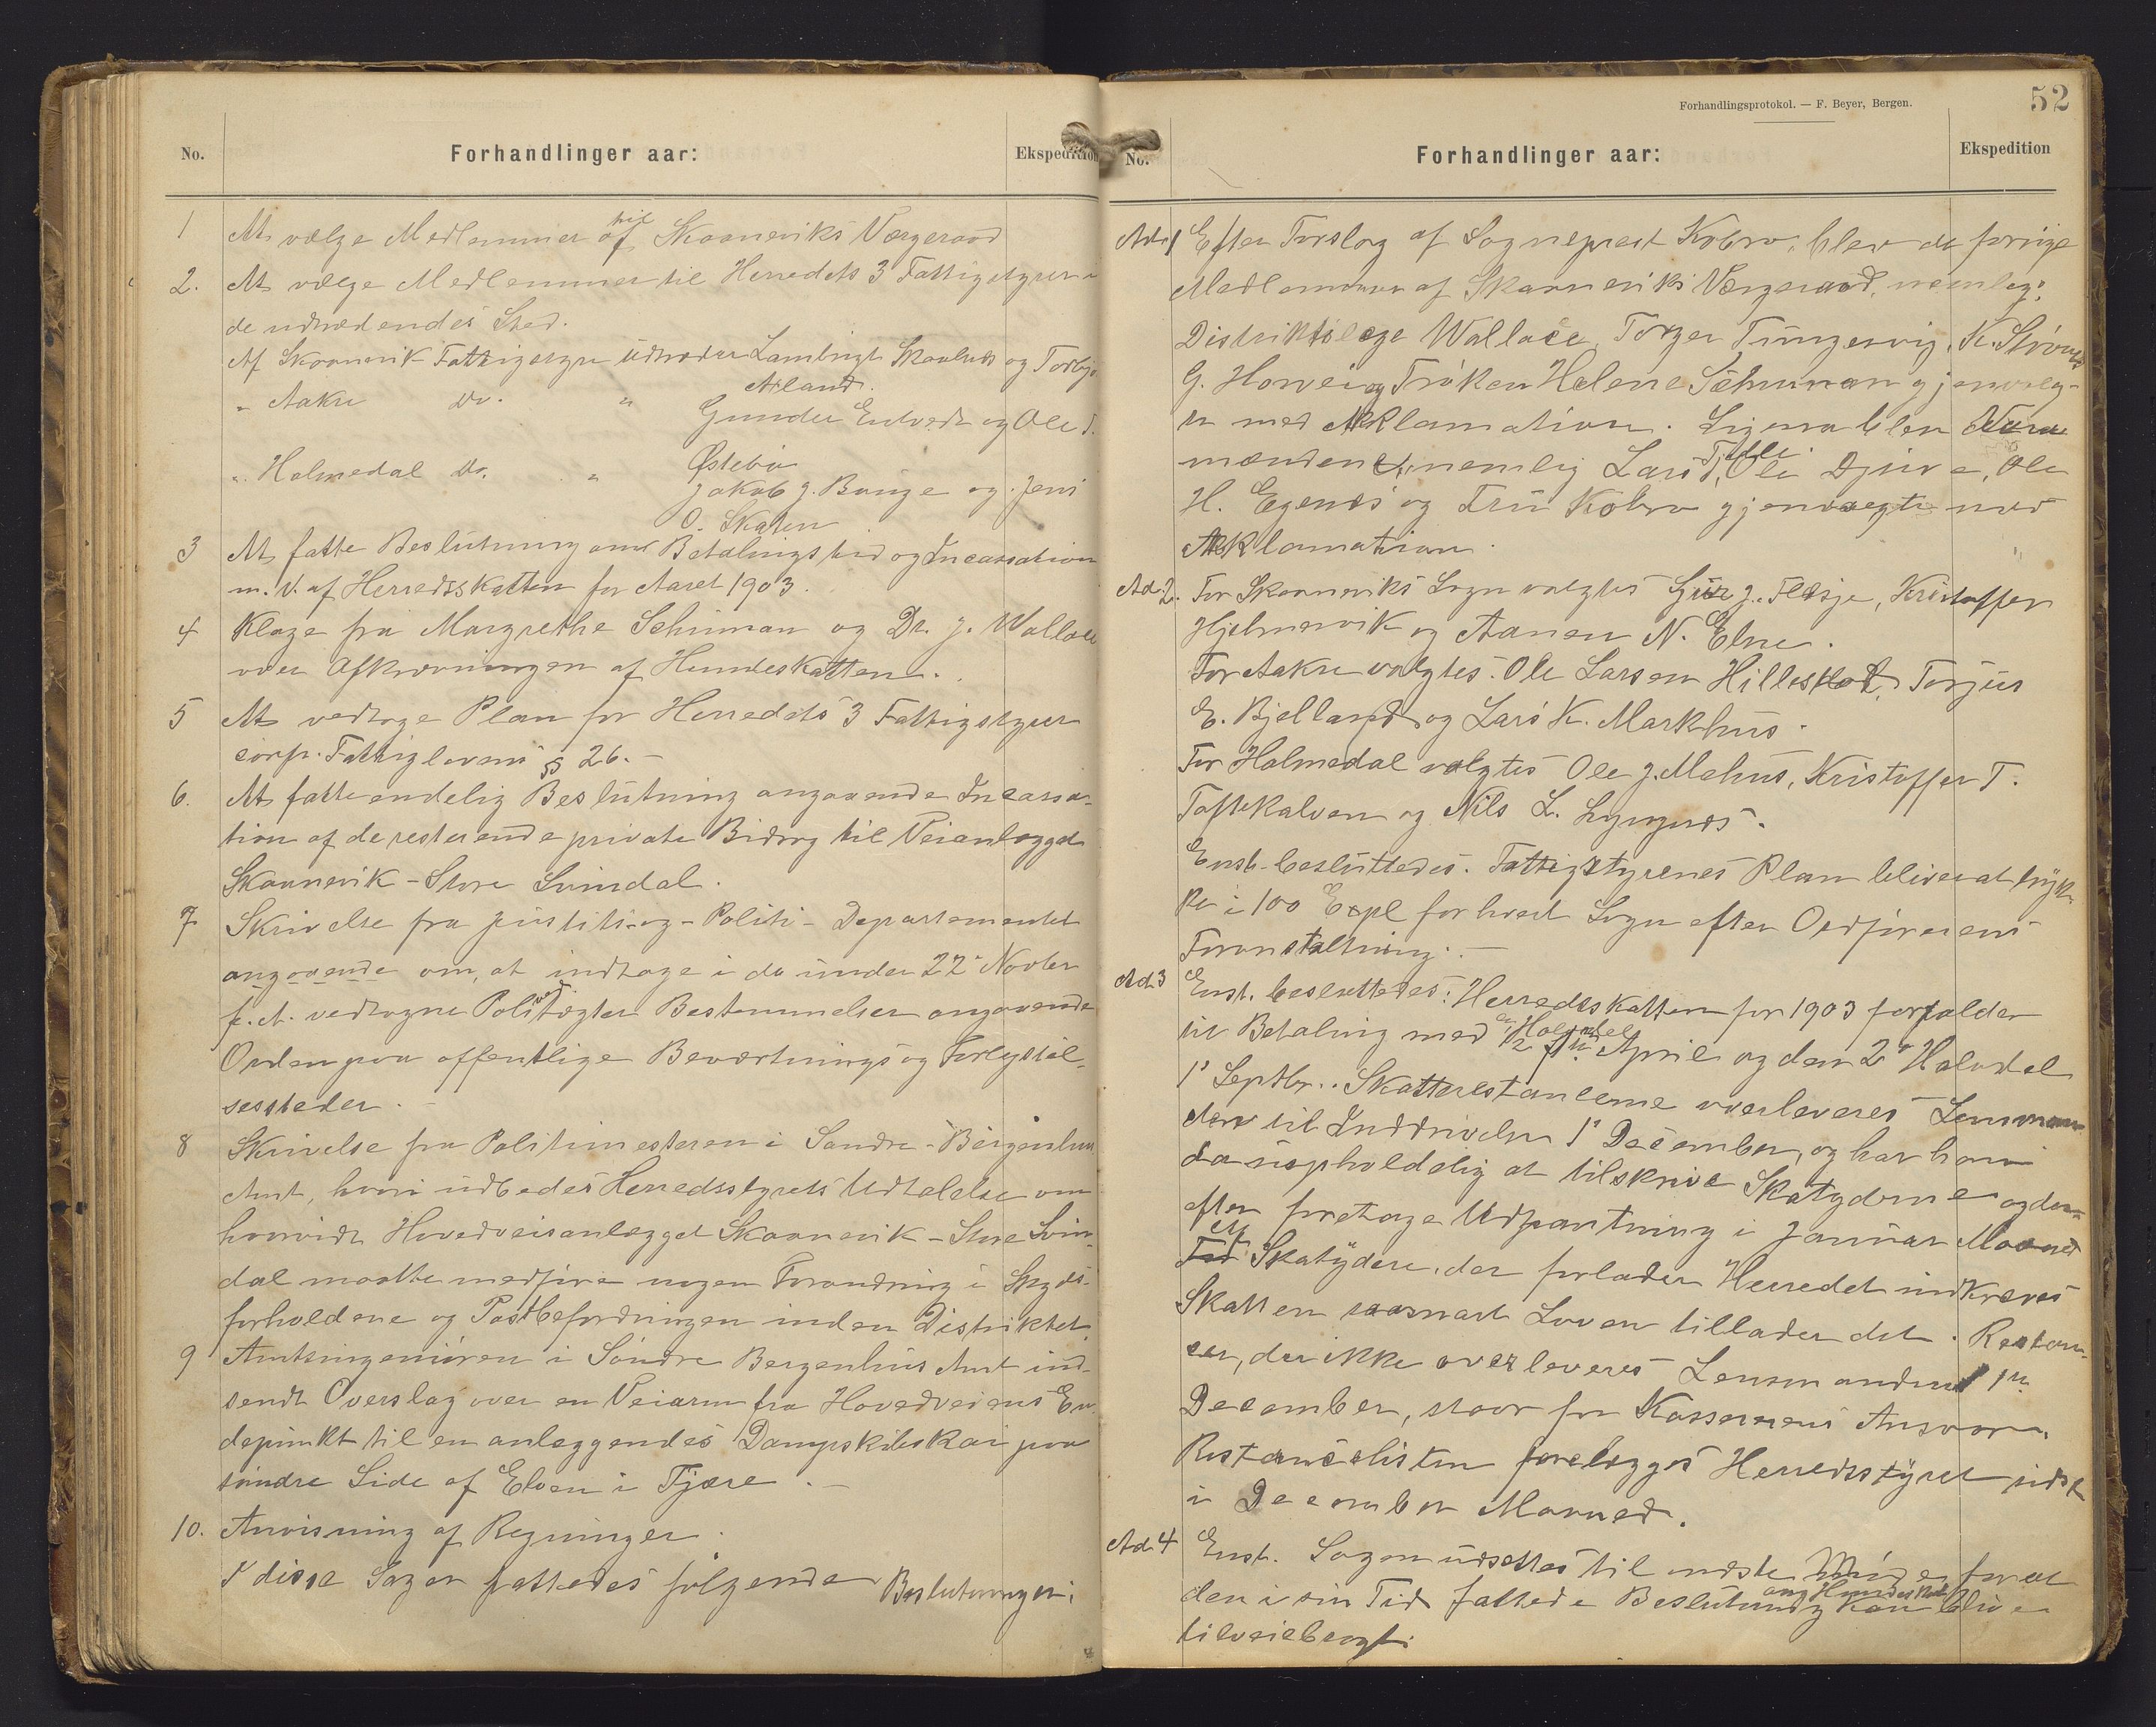 No.
Forhandlinger aar:
Ekspedition
1 At vælge Medlemmer til Skaaneviks Værgeraad
2. At vælge Medlemmer til Herredets 3 Fattigstyrer i
de udtrædendes Sted.
Af Skaanevik Fattigstyre udtræder Lambrigt Skaalnes og Torbjø
Arland.
" Aakre Do. " Gunder Entvedt og Ole d.
Østebø
" Holmedal Do. " Jakob J. Bauge og Jens
O. Skaten
3 At fatte Beslutning om Betalingstid og Incassation
m. V. af Herredsskatten for Aaret 1903.
4 Klage fra Margrethe Schuman og Dr. J. Wallace
over Afkrævningen af Hundeskatten.
5 At vedtage Plan for Herredets 3 Fattigstyrer
cörf. Fattiglovens § 26.
6. At fatte endelig Beslutning angaaende Incassa-
tion af de resterende private Bidrag til Veianlægget
Skaanevik - Store Svindal.
7 Skrivelse fra Justits- og - Politi - Departementet
angaaende om, at indtage i de under 22' Novber
f. A. vedtagne Politivedtægter Bestemmelser angaaende
Orden paa offentlige Beværtnings og Forlystel-
sessteder.
8 Skrivelse fra Politimesteren i Søndre - Bergenhus
Amt, hvori udbedes Herredsstyrets Udtalelse om
hvorvidt Hovedveisanlægget Skaanevik - Store Svin-
dal maatte medføre nogen Forandring i Skyds-
forholdene og Postbefordringen inden Distriktet.
9 Amtsingeniøren i Søndre Bergenhus Amt ind-
sendt Overslag over en Veiarm fra Hovedveiens En-
depunkt til en anlæggendes Dampskibskai paa
søndre Side af Elven i Fjære.
10. Anvisning af Regninger.
I disse Sager fattedes følgende Beslutninger:
52
Forhandlingsprotokol. — F. Beyer, Bergen.
No.
Forhandlinger aar:
Ekspedition
Ad. 1 Efter Forslag af Sogneprest Kobro blev de forrige
Medlemmer af Skaaneviks Værgeraad, nemlig:
Distriktslæge Wallace, Torger Tungesvig, K. Strømes
G. Horvei og Frøken Helene Schuman gjenvalg-
te med Akklamation. Ligesaa blev Vara
mændene, nemlig Lars T, Ole Djuve, Ole
H. Egenes og Fru Kobro gjenvalgte med
Akklamation.
Ad. 2. For Skaaneviks Sogn valgtes Guri J. Flesje, Kristoffer
Hjelmervik og Aanen N. Elne.
For Aakre valgtes Ole Larsen Hilleskot, Torjus
E. Bjelland og Lars K. Markhus.
For Holmedal valgtes Ole J. Mehus, Kristoffer T.
Toftekalven og Nils L. Lyngnes.
Enst. besluttedes. Fattigstyrenes Plan bliver at tryk-
ke i 100 Expl for hvert Sogn efter Ordførerens
Foranstaltning.
Ad. 3 Enst. besluttedes: Herredsskatten for 1903 forfalder
til Betaling med en Halvdel 1ste April og den 2' Halvdel
1' Septbr. Skatterestancerne overleveres Lensman-
den til Inddrivelse 1' December, og har han
da uopholdelig at tilskrive Skatyderne og der-
efter foretage Udpantning i Januar Maaned
Af Skatydere, der forlader Herredet indkræves
Skatten saasnart Loven tillader det. Restan-
cer, der ikke overleveres Lensmanden 1ste
December, staar for Kassererens Ansvar.
Restancelisten forelægges Herredsstyret sidst
i December Maaned.
Ad. 4 Enst. Sagen udsettes til næste Møde for at
den i sin Tid fattede Beslutning ang Hundeskat kan blive
tilveiebragt.